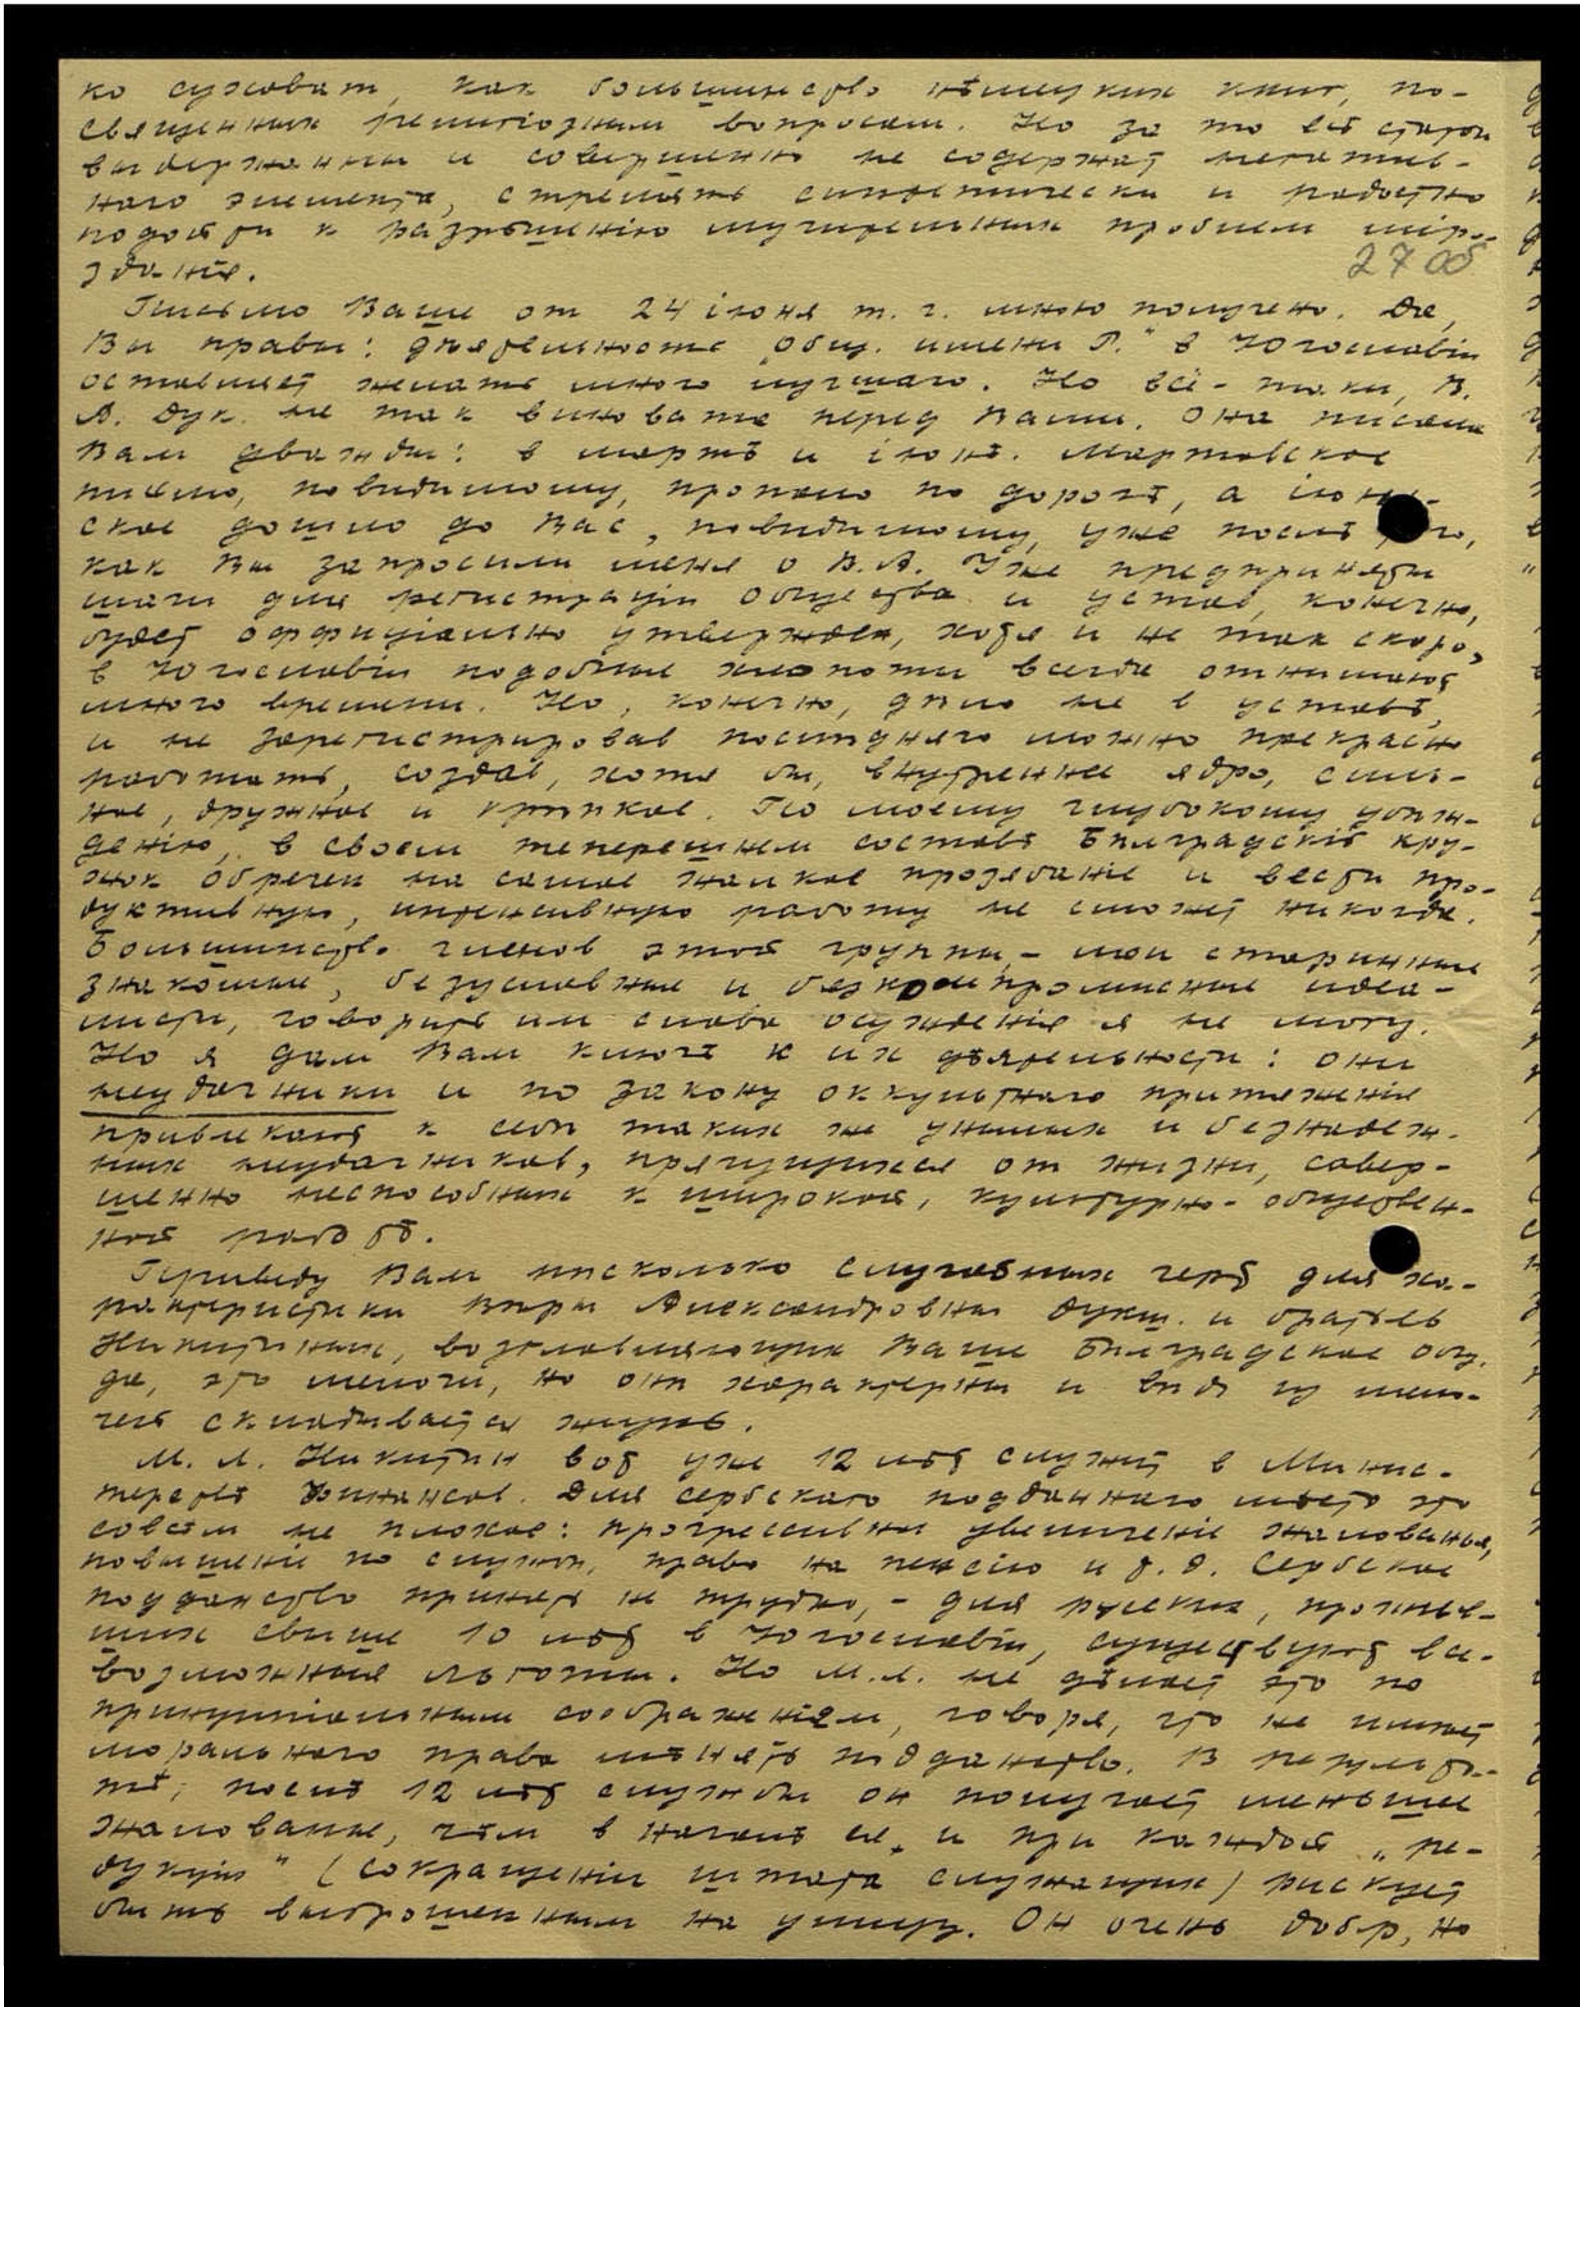 ко суховат, как большинство нѣмецких книг, по-
священных религіозным вопросам. Но за то всѣ статьи
выдержанны и совершенно не содержат негатив-
наго элемента, стремясь синтетически и радостно
подойти к разрѣшенію мучительных проблем міро-
зданія.
27 об
Письмо Ваше от 24 іюня т. г. мною получено. Да,
Вы правы: дѣятельность „Общ. имени Р." в Югославіи
оставляет желать много лучшаго. Но всё-таки, В.
А. Дук. не так виновата перед Вами. Она писала
Вам дважды: в мартѣ и іюнѣ. Мартовское
письмо, повидимому, пропало по дорогѣ, а іюнь-
ское дошло до Вас, повидимому, уже послѣ того,
как Вы запросили меня о В.А. Уже предприняты
шаги для регистраціи Общества и устав, конечно,
будет оффиціально утвержден, хотя и не так скоро,
в Югославіи подобные хлопоты всегда отнимают
много времени. Но, конечно, дѣло не в уставѣ,
и не зарегистрировав послѣдняго можно прекрасно
работать, создав, хотя бы, внутреннее ядро, силь-
ное, дружное и крѣпкое. По моему глубокому убѣж-
денію, в своем теперешнем составѣ Бѣлградскій кру-
жок обречен на самое жалкое прозябаніе и вести про-
дуктивную, интенсивную работу не сможет никогда.
Большинство членов этой группы, – мои старинные
знакомые, безусловные и безкомпромиссные идеа-
листы, говорить им слова осужденія я не могу.
Но я дам Вам ключ к их дѣятельности: они
неудачники и по закону оккультнаго притяженія
привлекают к себѣ таких же унылых и безнадеж-
ных неудачников, прячущихся от жизни, совер-
шенно неспособных к широкой, культурно-обществен-
ной работѣ.
Приведу Вам нѣсколько случайных черт для ха-
рактеристики Вѣры Александровны Дукш. и братьев
Никитиных, возглавляющих Ваше Бѣлградское Общ.
да, это мелочи, но они характерны и вѣдь из мело-
чей складывается жизнь.
М. Л. Никитин вот уже 12 лѣт служит в Минис-
терствѣ Финансов. Для сербскаго подданнаго мѣсто это
совсѣм не плохое: прогрессивны увеличеніе жалованья,
повышеніе по службѣ, право на пенсію и т. д. Сербское
подданство принять не трудно, – для русских, прожив-
ших свыше 10 лѣт в Югославіи, существуют все-
возможныя льготы. Но М.Л. не дѣлает это по
принципіальным соображеніям, говоря, что не имѣет
моральнаго права мѣнять подданство. В результа-
тѣ, послѣ 12 лѣт службы он получает меньшее
жалованье, чѣм в началѣ ея, и при каждой „ре-
дукціи" (сокращеніи штата служащих) рискует
быть выброшенным на улицу. Он очень добр, но